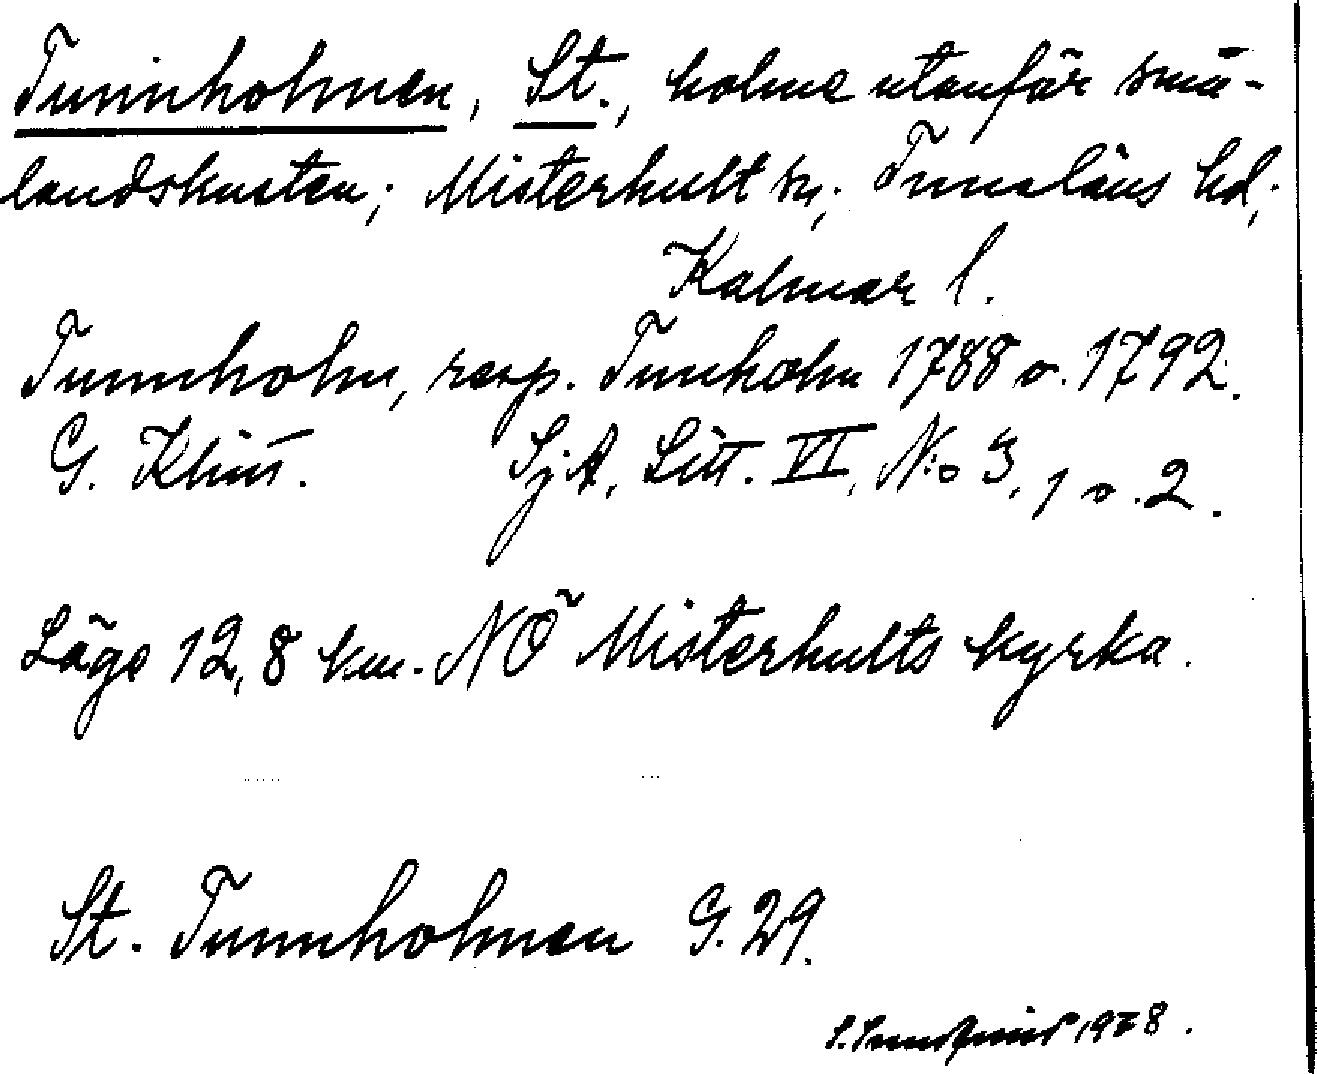 Tunnholmen, St., holme utanför små-
landskusten; Misterhult sn; Tunaläns hd;
Kalmar l.
Tunnholm, resp. Tunholm 1788 o. 1792.
G. Klint. SjA, Litt. VI, N:o 3, 1 o. 2.
Läge 12,8 km. NÖ Misterhults kyrka.
St. Tunnholmen G. 29.
1978.